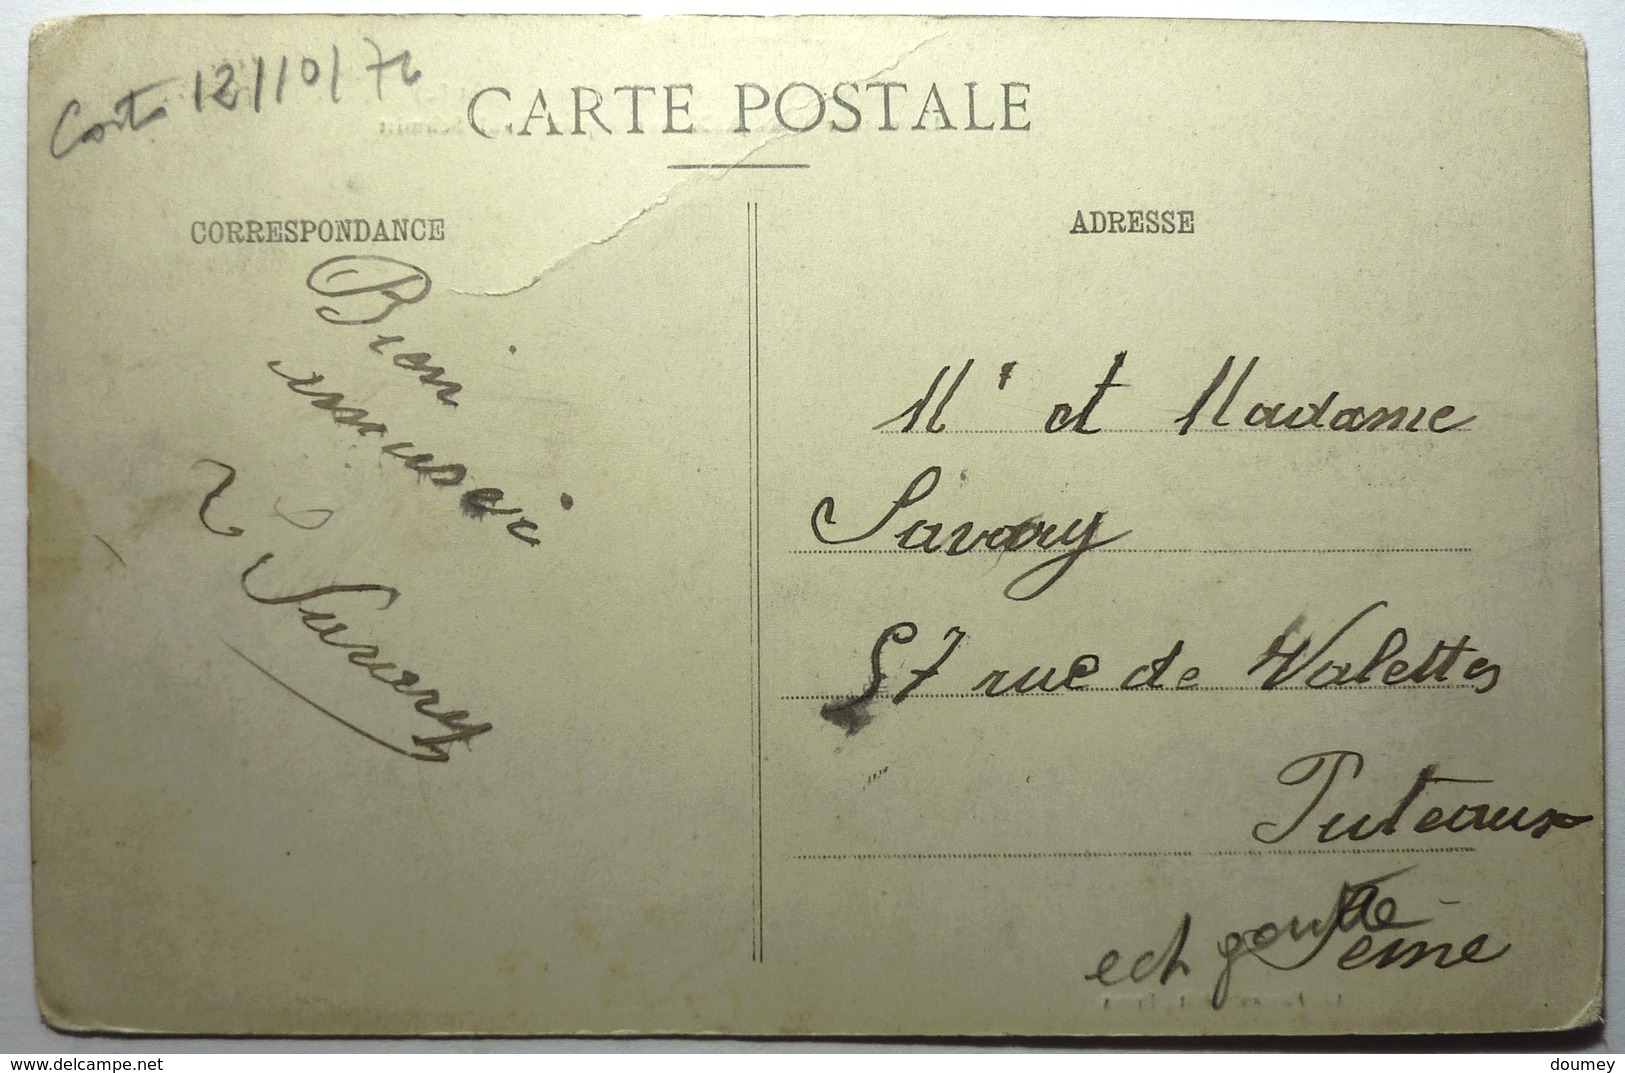 12/10/76
CARTE POSTALE
CORRESPONDANCE
ADRESSE
Bien
Savary
Mr et Madame
Savary
57 rue de Valettes
Puteaux
Seine
ech
www.delcampe.net
doumey